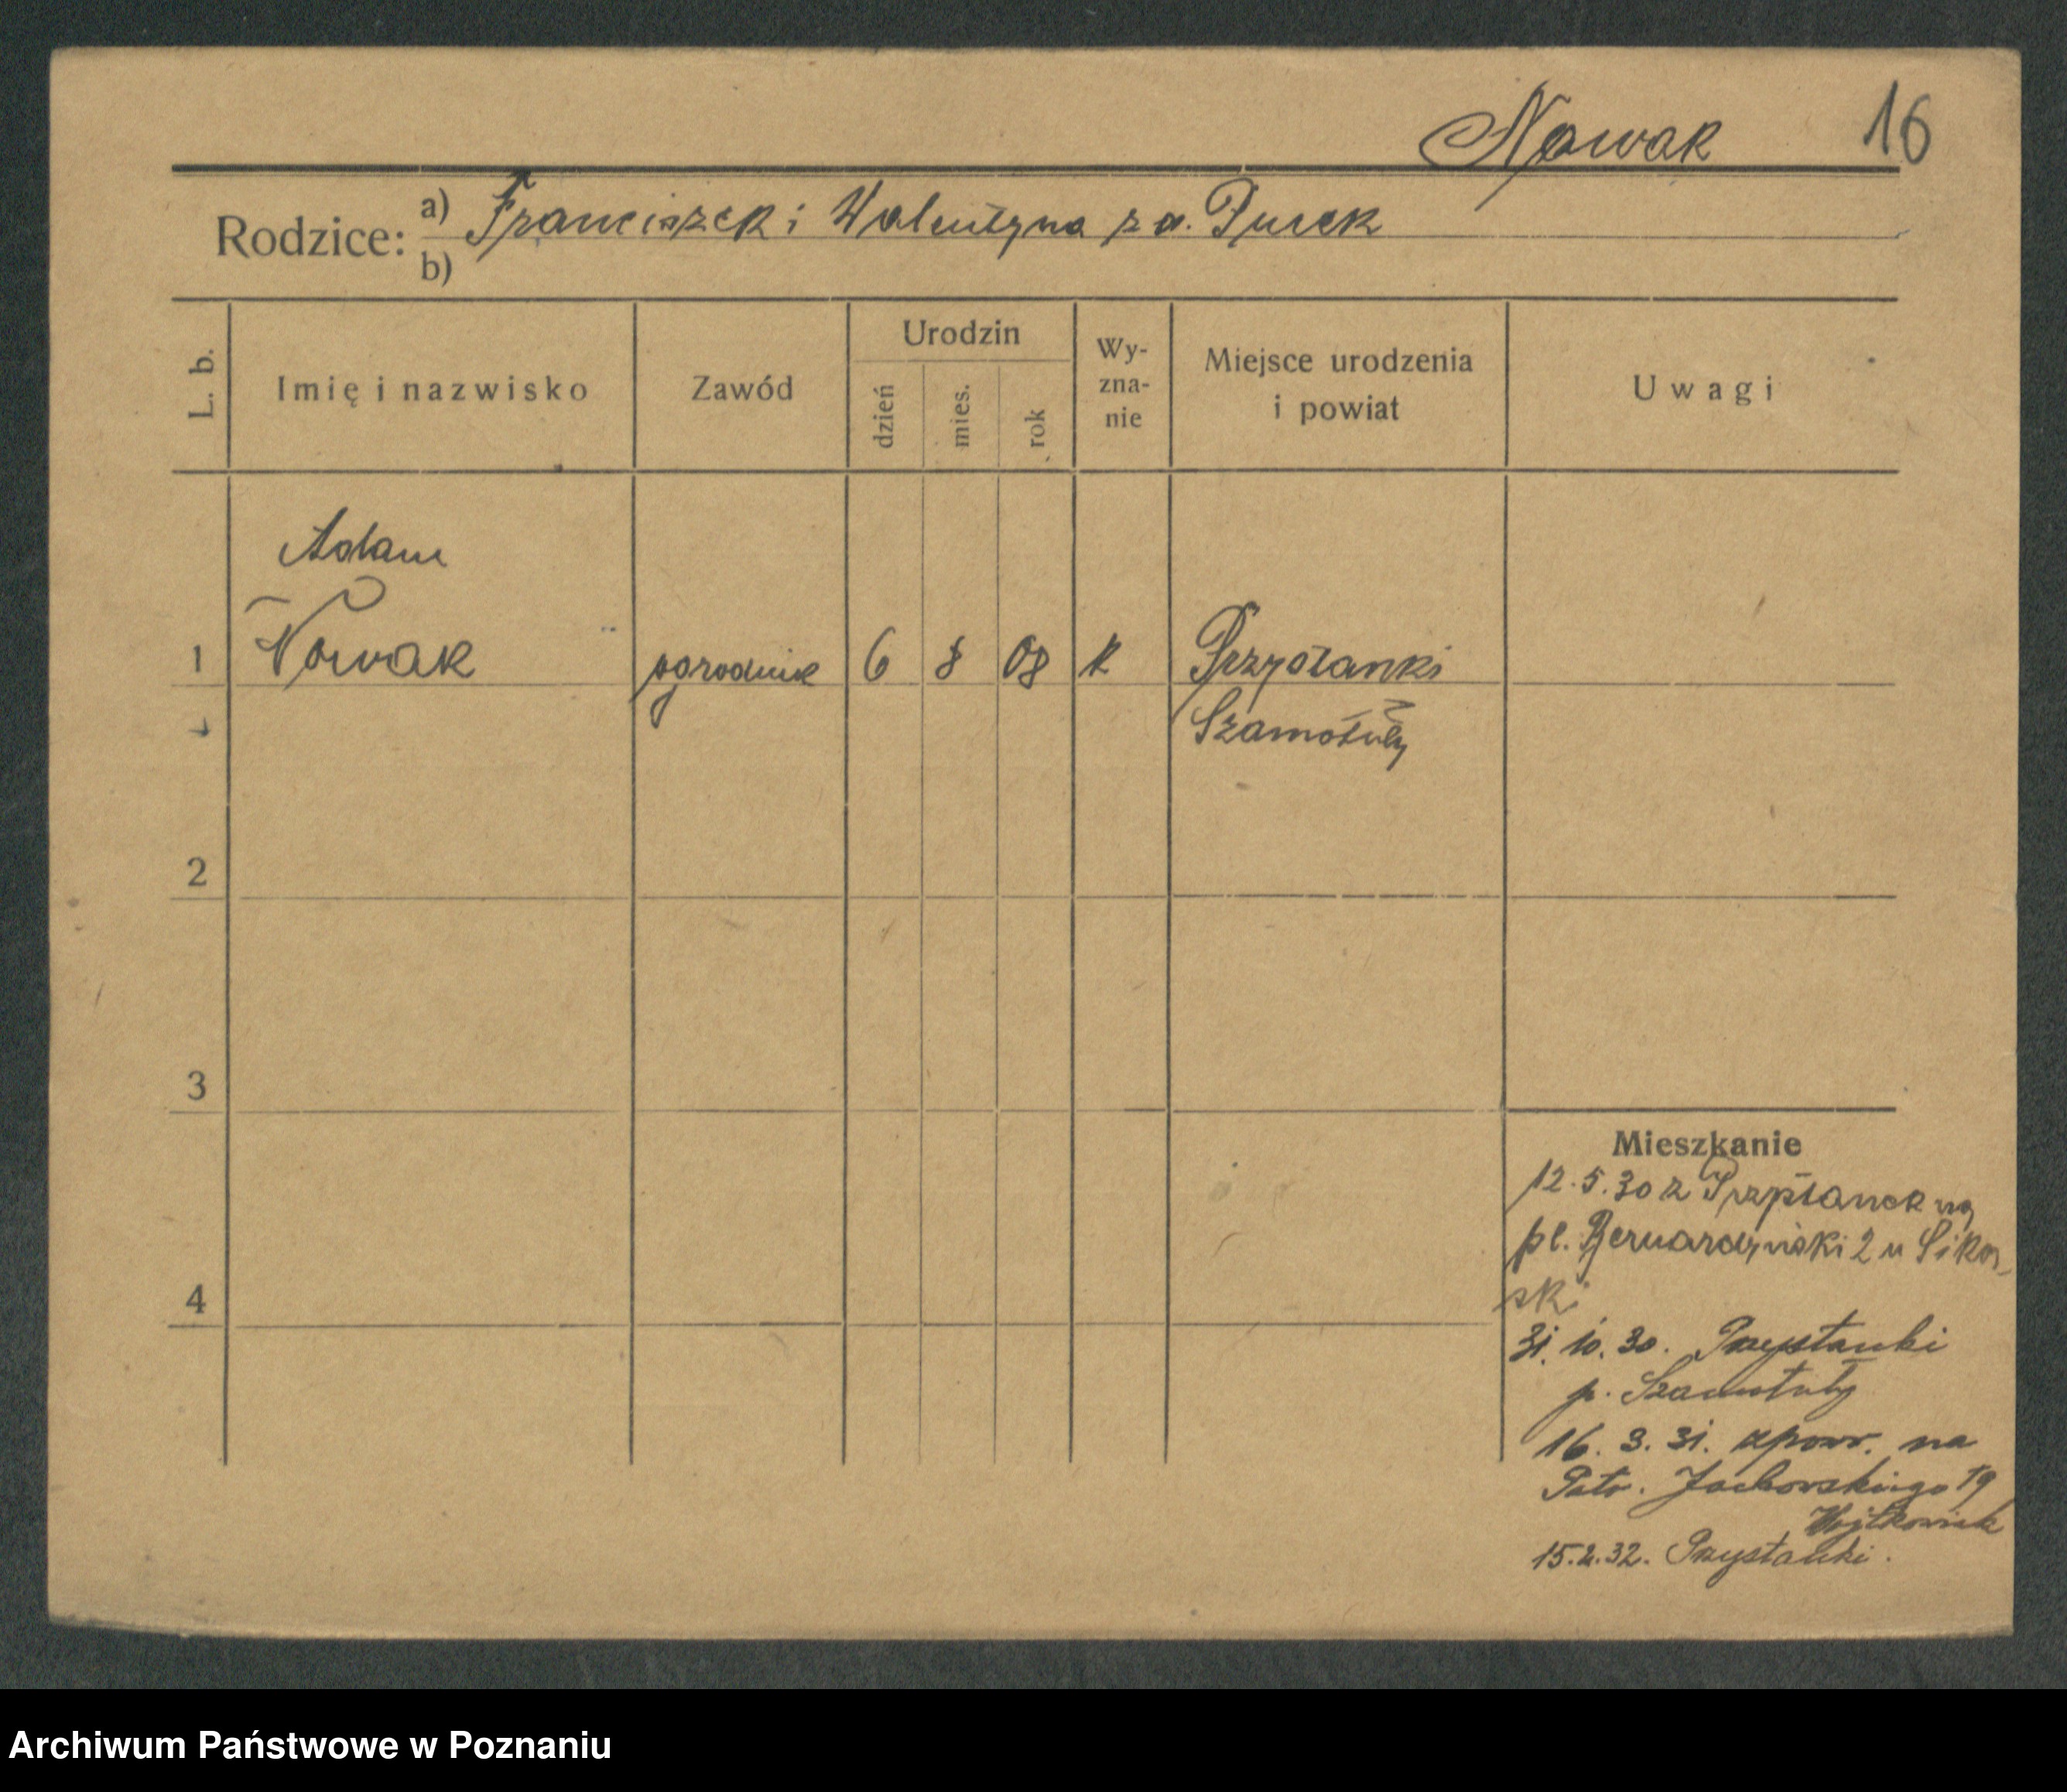 Nowak 16
Rodzice: a) Franciszek i Walentyna z d.
b)
L. b. Imię i nazwisko Zawód Urodzin dzień mies. rok Wy-zna-nie Miejsce urodzenia i powiat Uwagi
Adam
1 Nowak ogrodnik 6 8 08 k Przystanki
Szamotuły
2
3
4
Mieszkanie
12.5.30 z Przystanek na
pl. Bernardyński 2 u Sikor-
ski
31.10.30. Przystanki
p. Szamotuły
16.3.31. zpowr. na
Patr. Jackowskiego 19
Wojtkowiak
15.2.32. Przystanki.
Archiwum Państwowe w Poznaniu